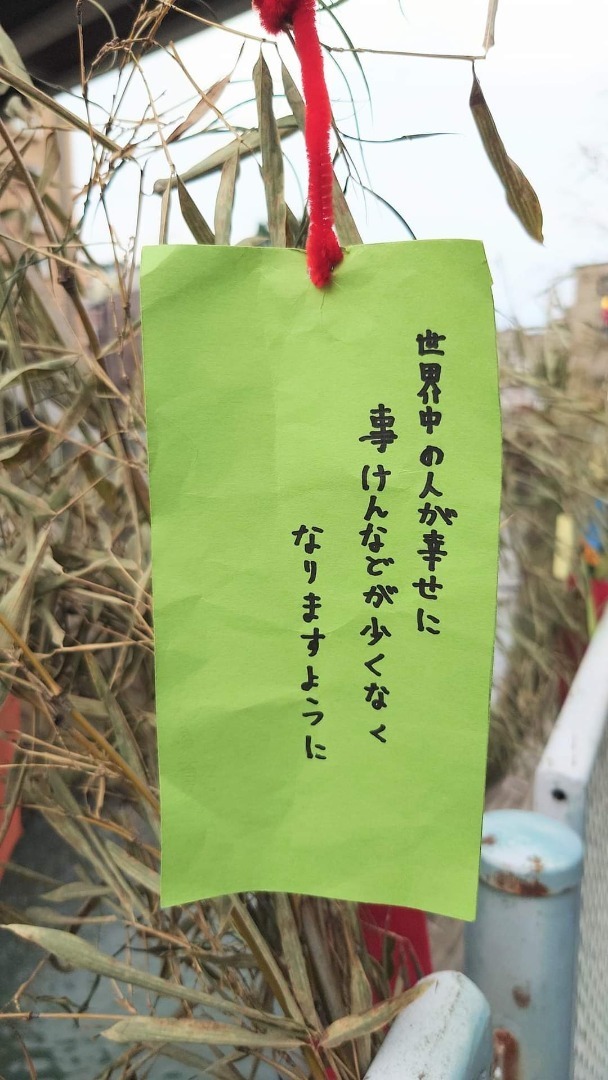 世界中の人が幸せに
事けんなどが少なく
なりますように